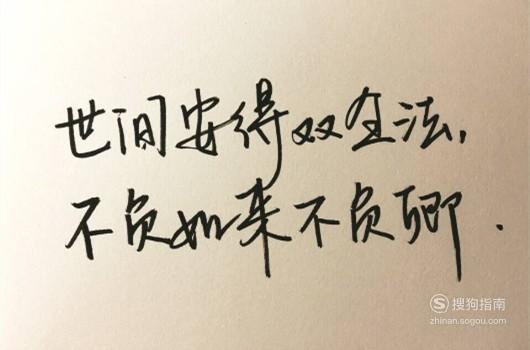 世间安得双全法，
不负如来不负卿.
搜狗指南
zhinan.sogou.com